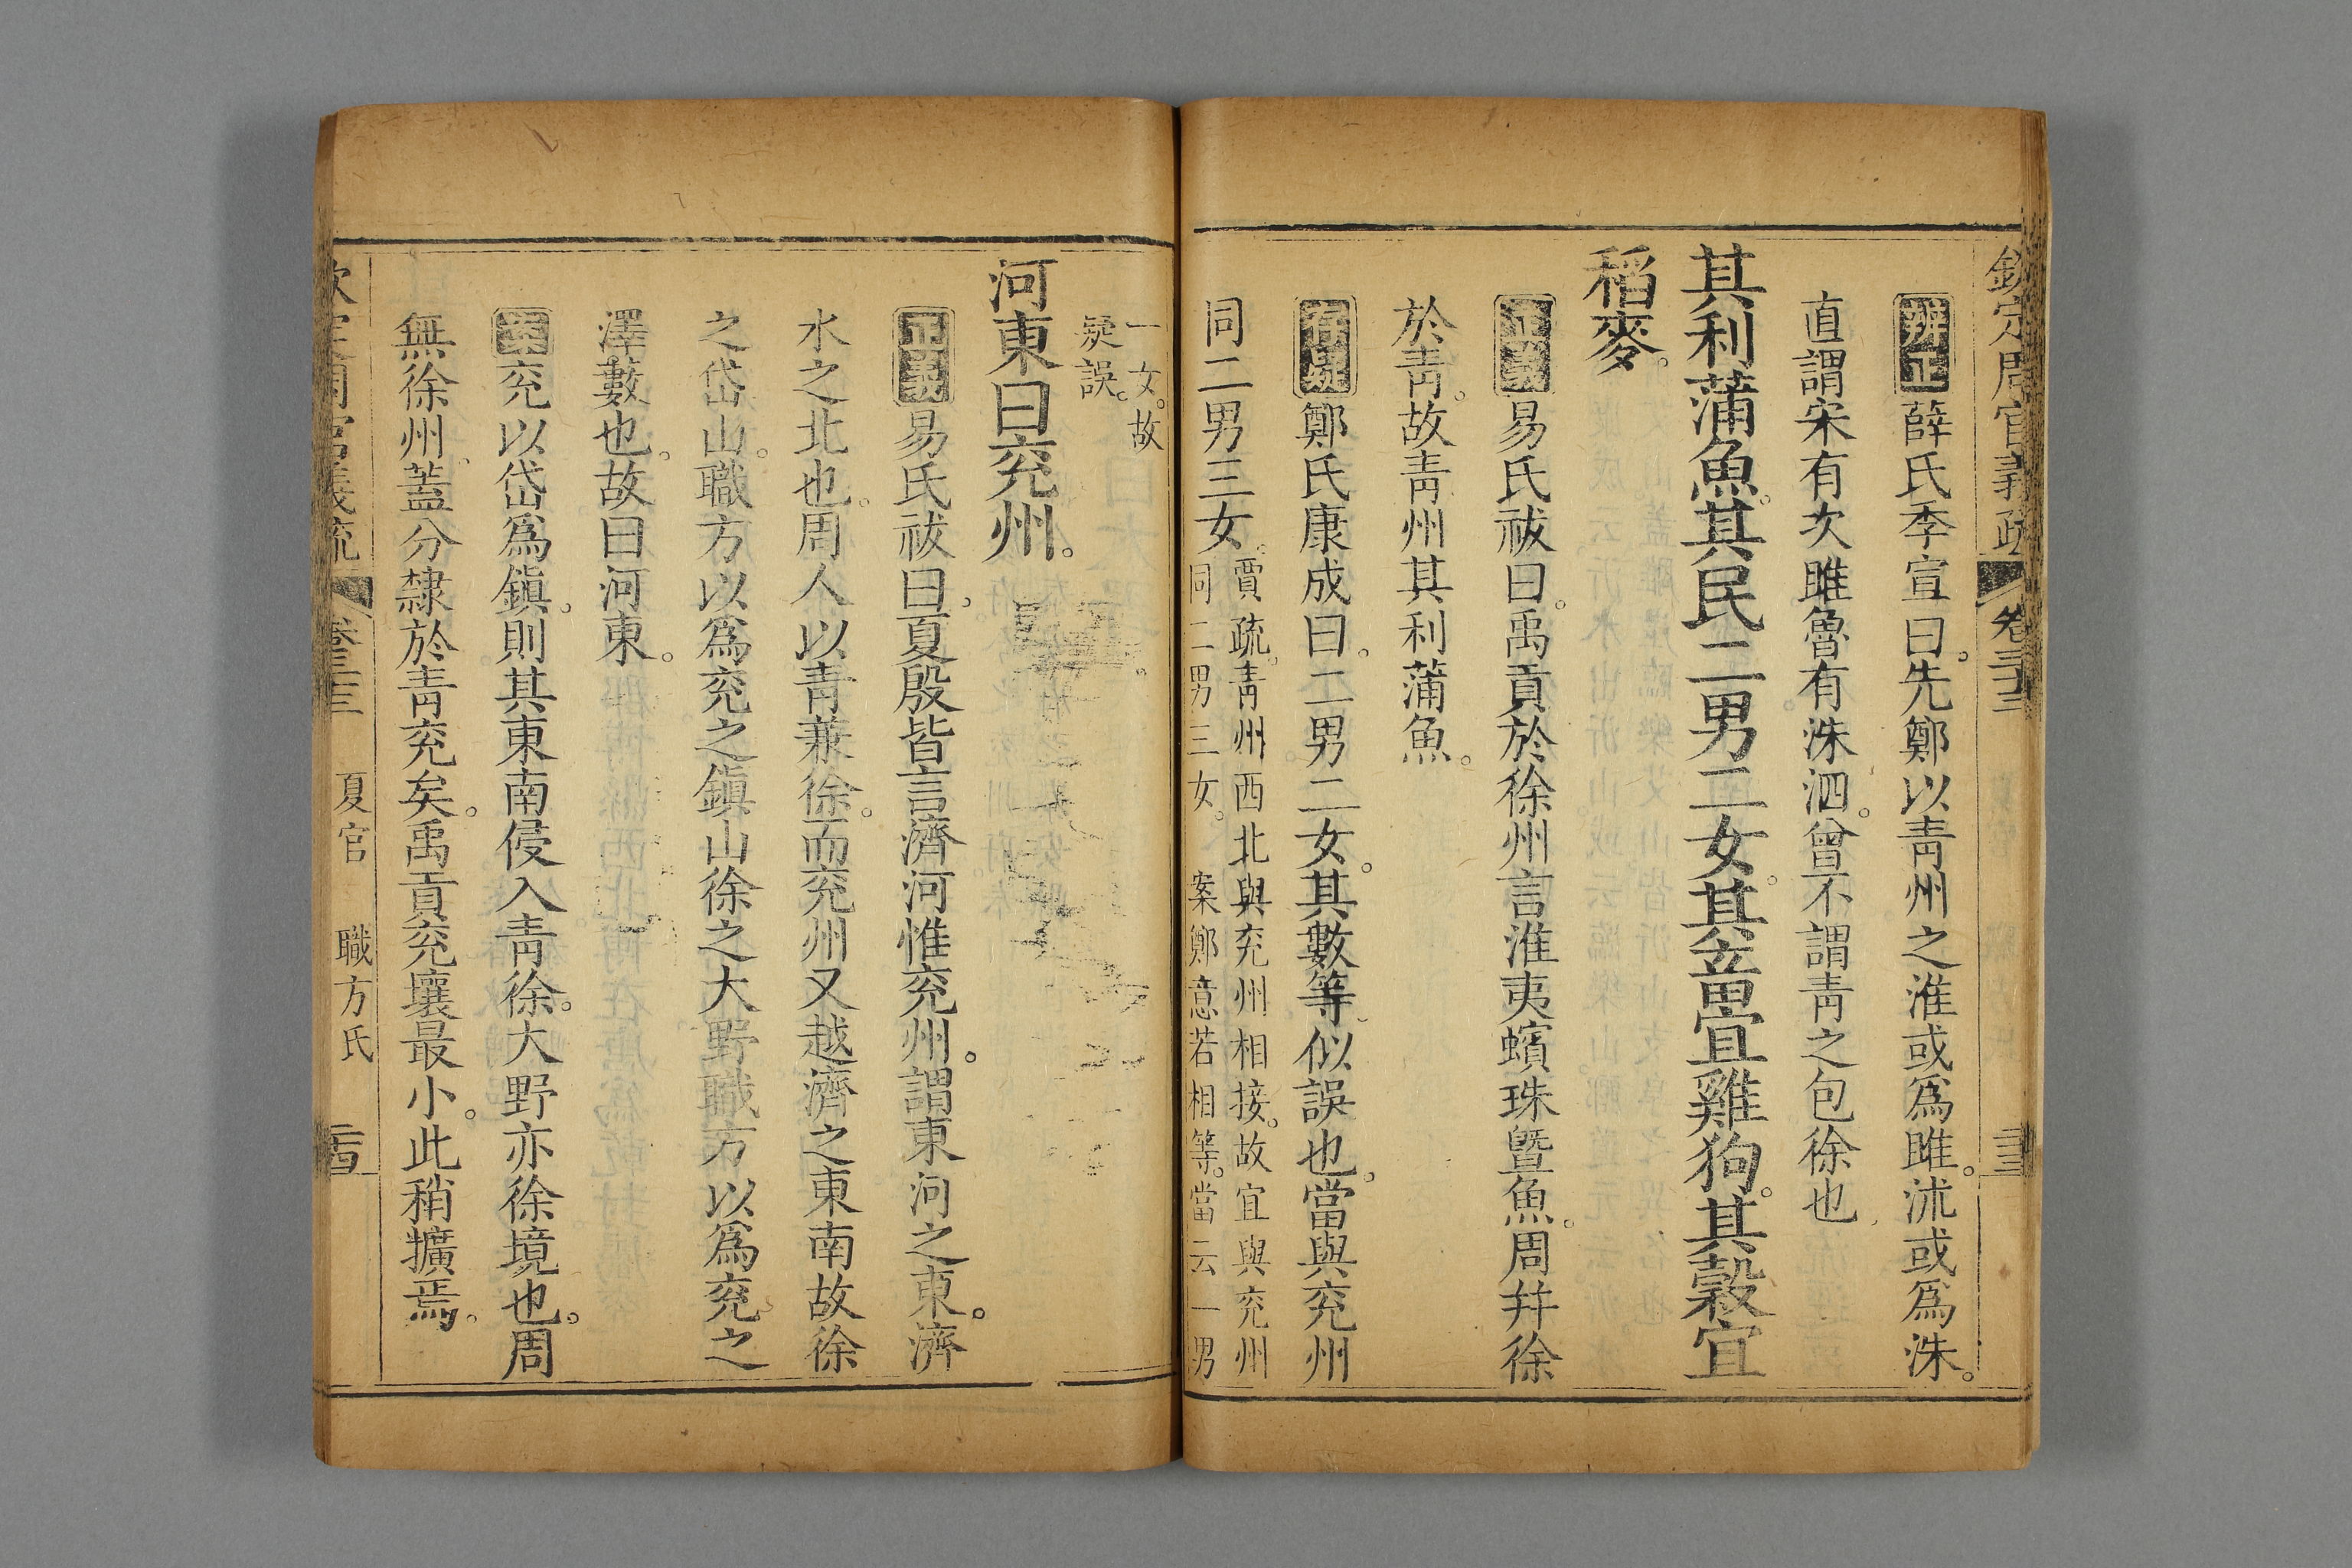 欽定周官義疏 卷三十三
辨正薛氏季宣曰。先鄭以靑州之淮或爲雎。沭或爲洙。
直謂宋有次雎魯有洙泗。曾不謂靑之包徐也
其利蒲魚。其民二男二女。其畜宜雞狗。其穀宜
稻麥。
正義易氏祓曰。禹貢於徐州言淮夷蠙珠曁魚。周幷徐
於靑。故靑州其利蒲魚。
存疑鄭氏康成曰。二男二女。其數等似誤也。當與兖州
同二男三女。賈疏。靑州西北與兖州相接。故宜與兖州
同二男三女。 案鄭意若相等。當云一男
一女。故
疑誤。
河東曰兖州。
正義易氏祓曰。夏殷皆言濟河惟兖州。謂東河之東。濟
水之北也。周人以靑兼徐。而兖州又越濟之東南故徐
之岱山。職方以爲兖之鎭山徐之大野職方以爲兖之
澤藪也。故曰河東。
案兖以岱爲鎭。則其東南侵入靑徐。大野亦徐境也。周
無徐州。蓋分隸於靑兖矣。禹貢兖壤最小。此稍擴焉。
欽定周官義疏 卷三十三 夏官 職方氏